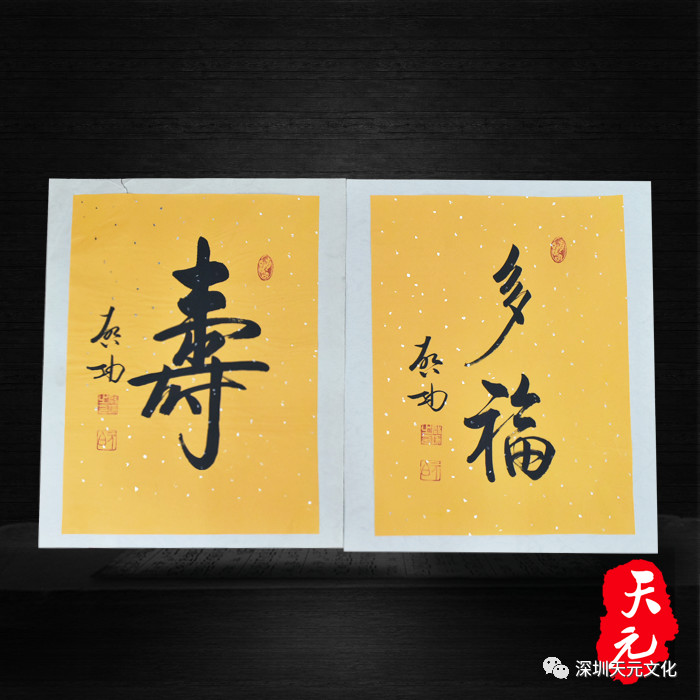 壽
启功
多
福
启功
天
元
深圳天元文化